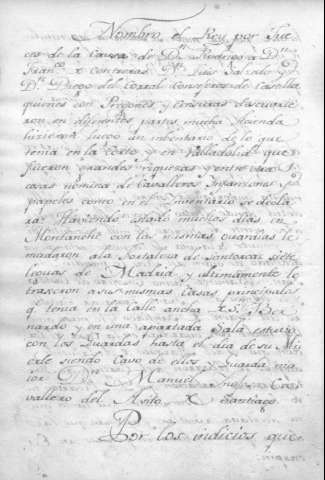 Nombro el Rey por Jue
ces de la Causa de Dn. Rodrigo á Dn.
Franco. de Contreras Dn. Luis Salcedo y
Dn. Diego del Corral Consejeros de Castilla
quienes con Pregones y Censuras descubrie
ron en diferentes partes mucha Hacienda
hizieron luego un inbentario de lo que
tenia en la Corte y en Valladolid que
fueron grandes riquezas y entre otras
cosas nomina de Cavalleros
papeles como en el Inventario se decla
ra. Haviendo estado muchos dias en
Montanche con las mismas guardias le
madaron a la fortaleza de Santorcaz siete
leguas de Madrid y ultimamente le
traxeron a sus mismas Casas principales
q tenia en la Calle ancha de Sn. Ber
nardo y en una apartada Sala estuvo
con los Guardas hasta el dia de su Mu
erte siendo Cavo de ellos y Guarda ma
ior Dn. Manuel Ca
vallero del Avito de Santiago
Por los indicios que